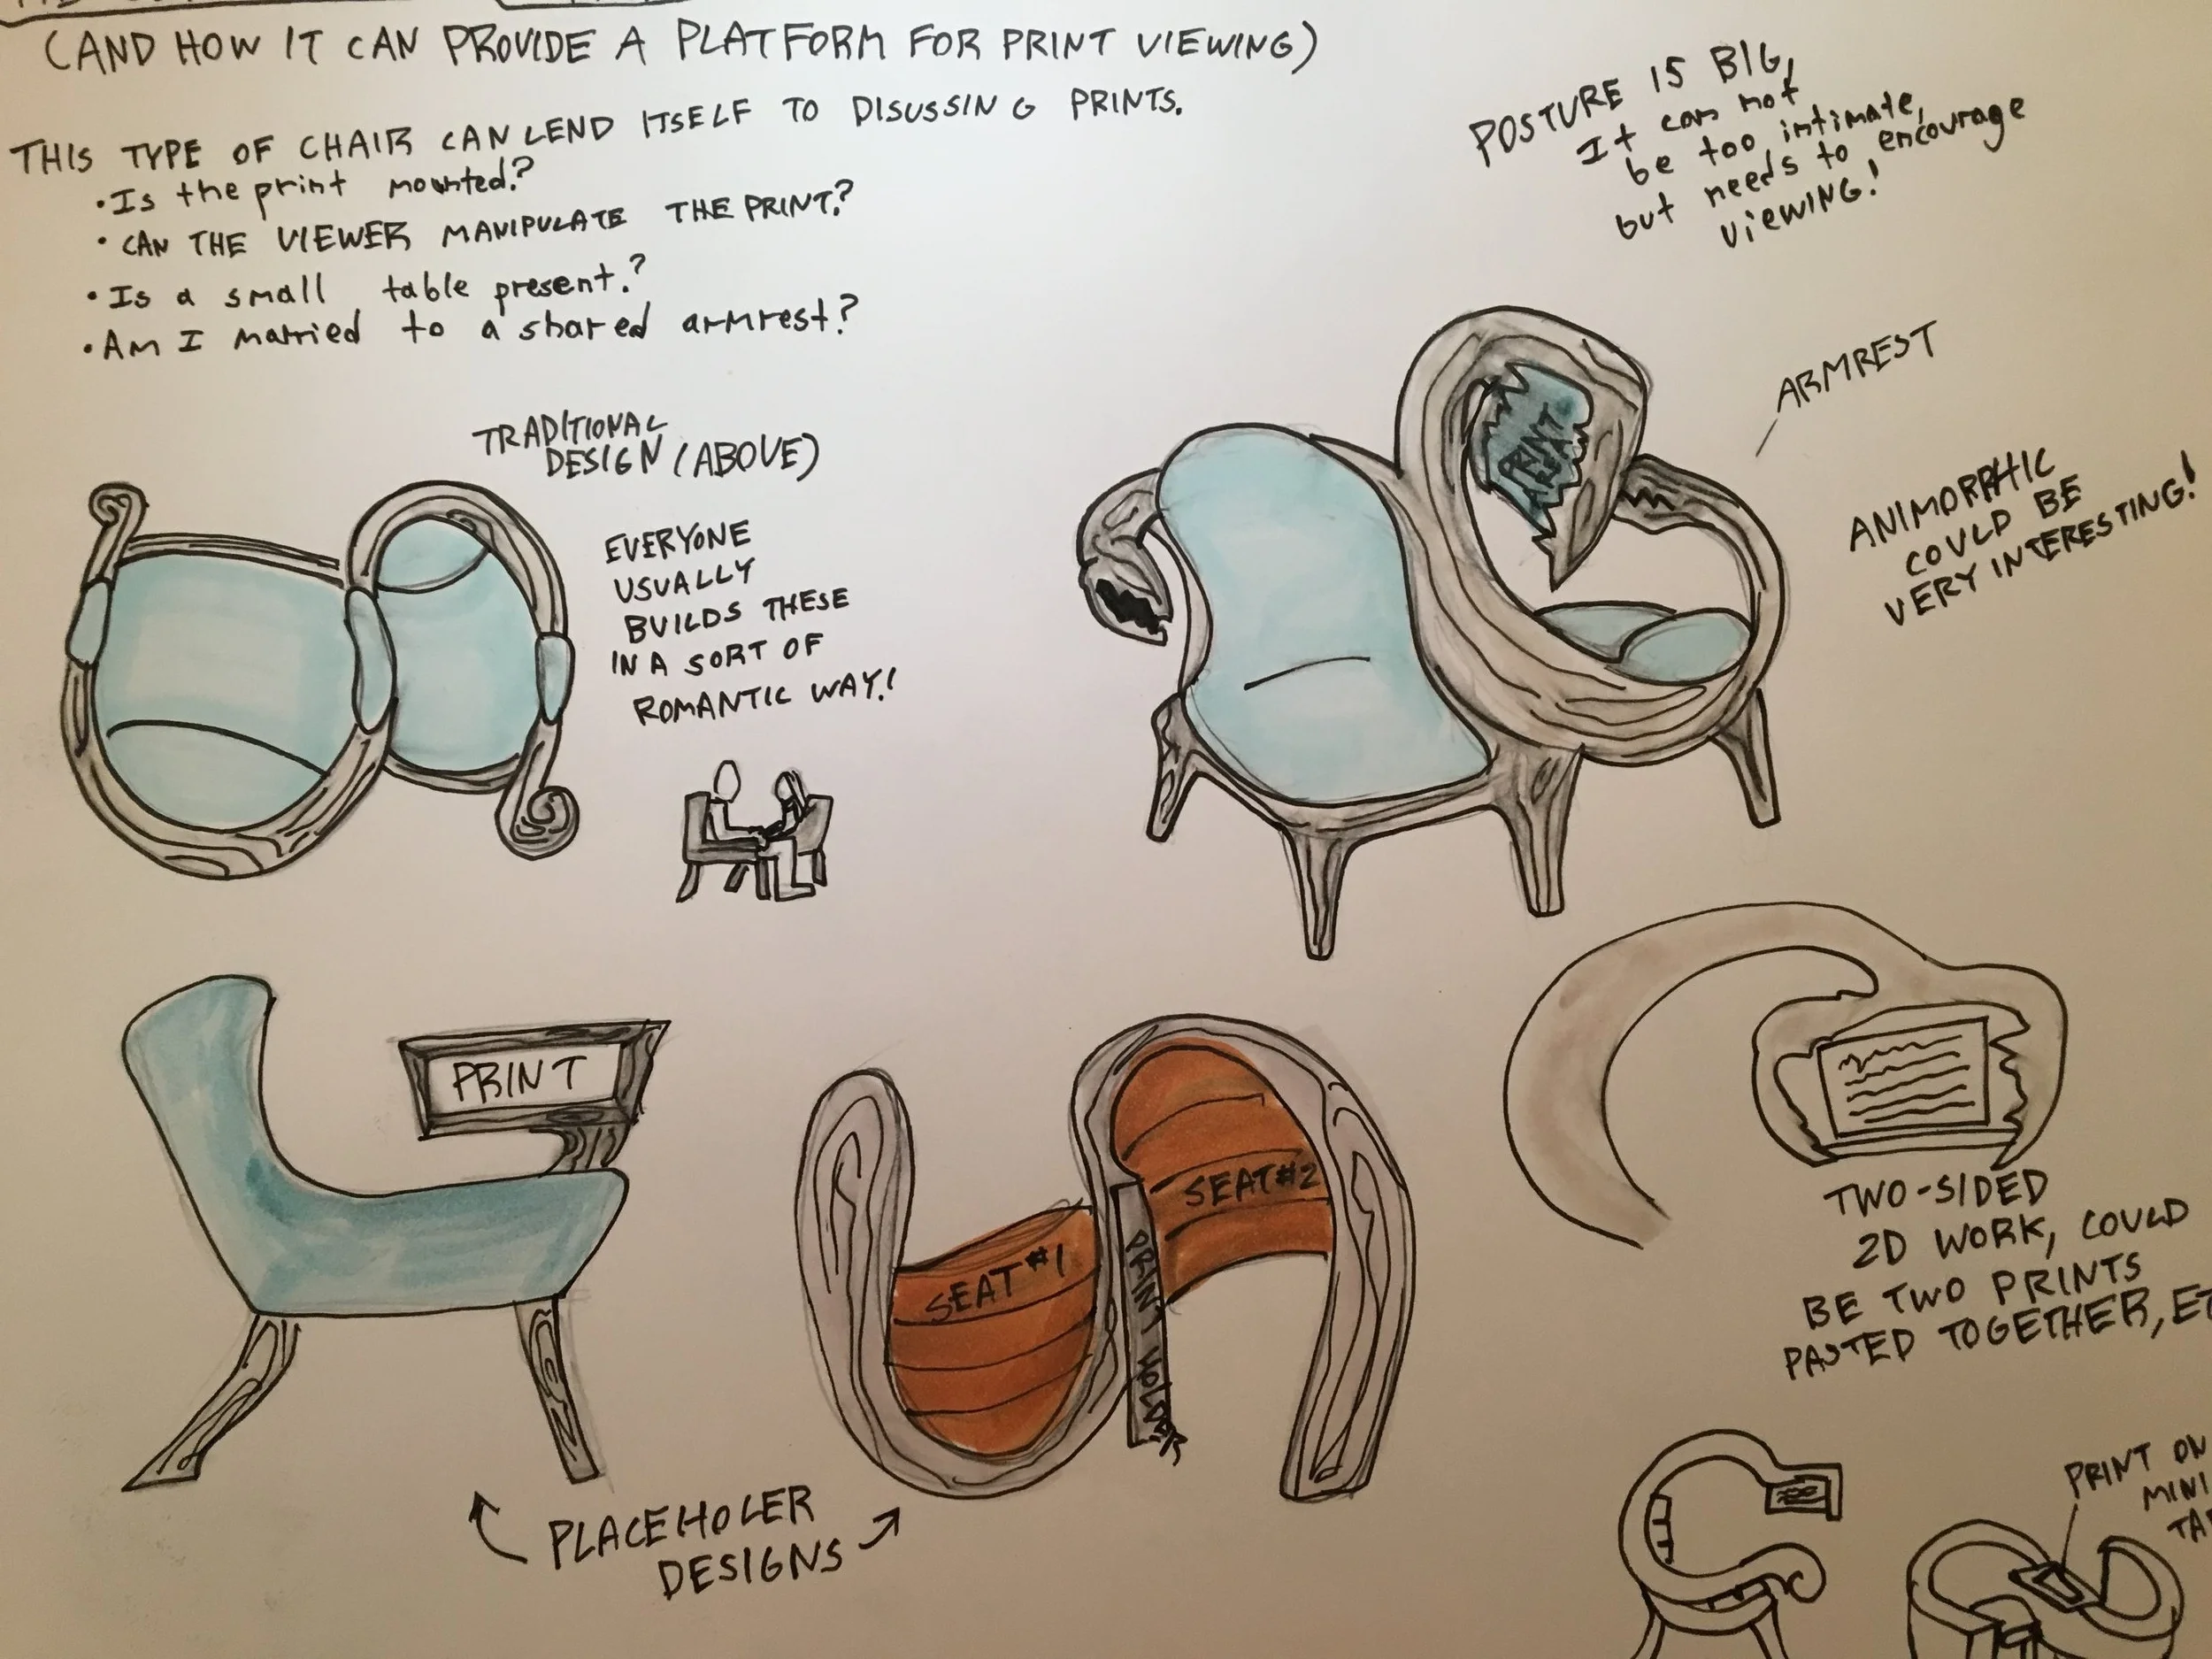 (AND HOW IT CAN PROVIDE A PLATFORM FOR PRINT VIEWING)
THIS TYPE OF CHAIR CAN LEND ITSELF TO DISUSSING PRINTS.
• Is the print mounted?
• CAN THE VIEWER MANIPULATE THE PRINT?
• Is a small table present?
• Am I married to a shared armrest?
POSTURE IS BIG,
It can not
be too intimate,
but needs to encourage
viewing!
TRADITIONAL
DESIGN (ABOVE)
EVERYONE
USUALLY
BUILDS THESE
IN A SORT OF
ROMANTIC WAY!
PRINT
AREA
ARMREST
ANIMORPHIC
COULD BE
VERY INTERESTING!
PRINT
SEAT #1
SEAT #2
PRINT HOLDER
PLACEHOLER
DESIGNS
TWO-SIDED
2D WORK, COULD
BE TWO PRINTS
PASTED TOGETHER, ET
PRINT ON
MINI
TA